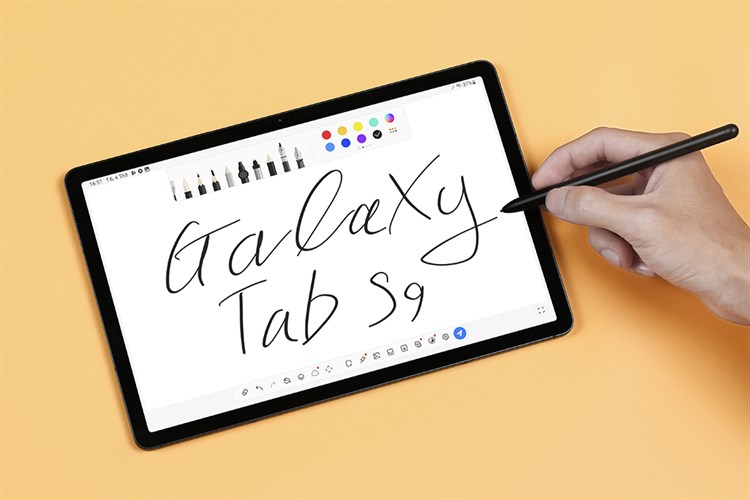 16:57 T6, 4 Th8
37%
Galaxy
Tab S9